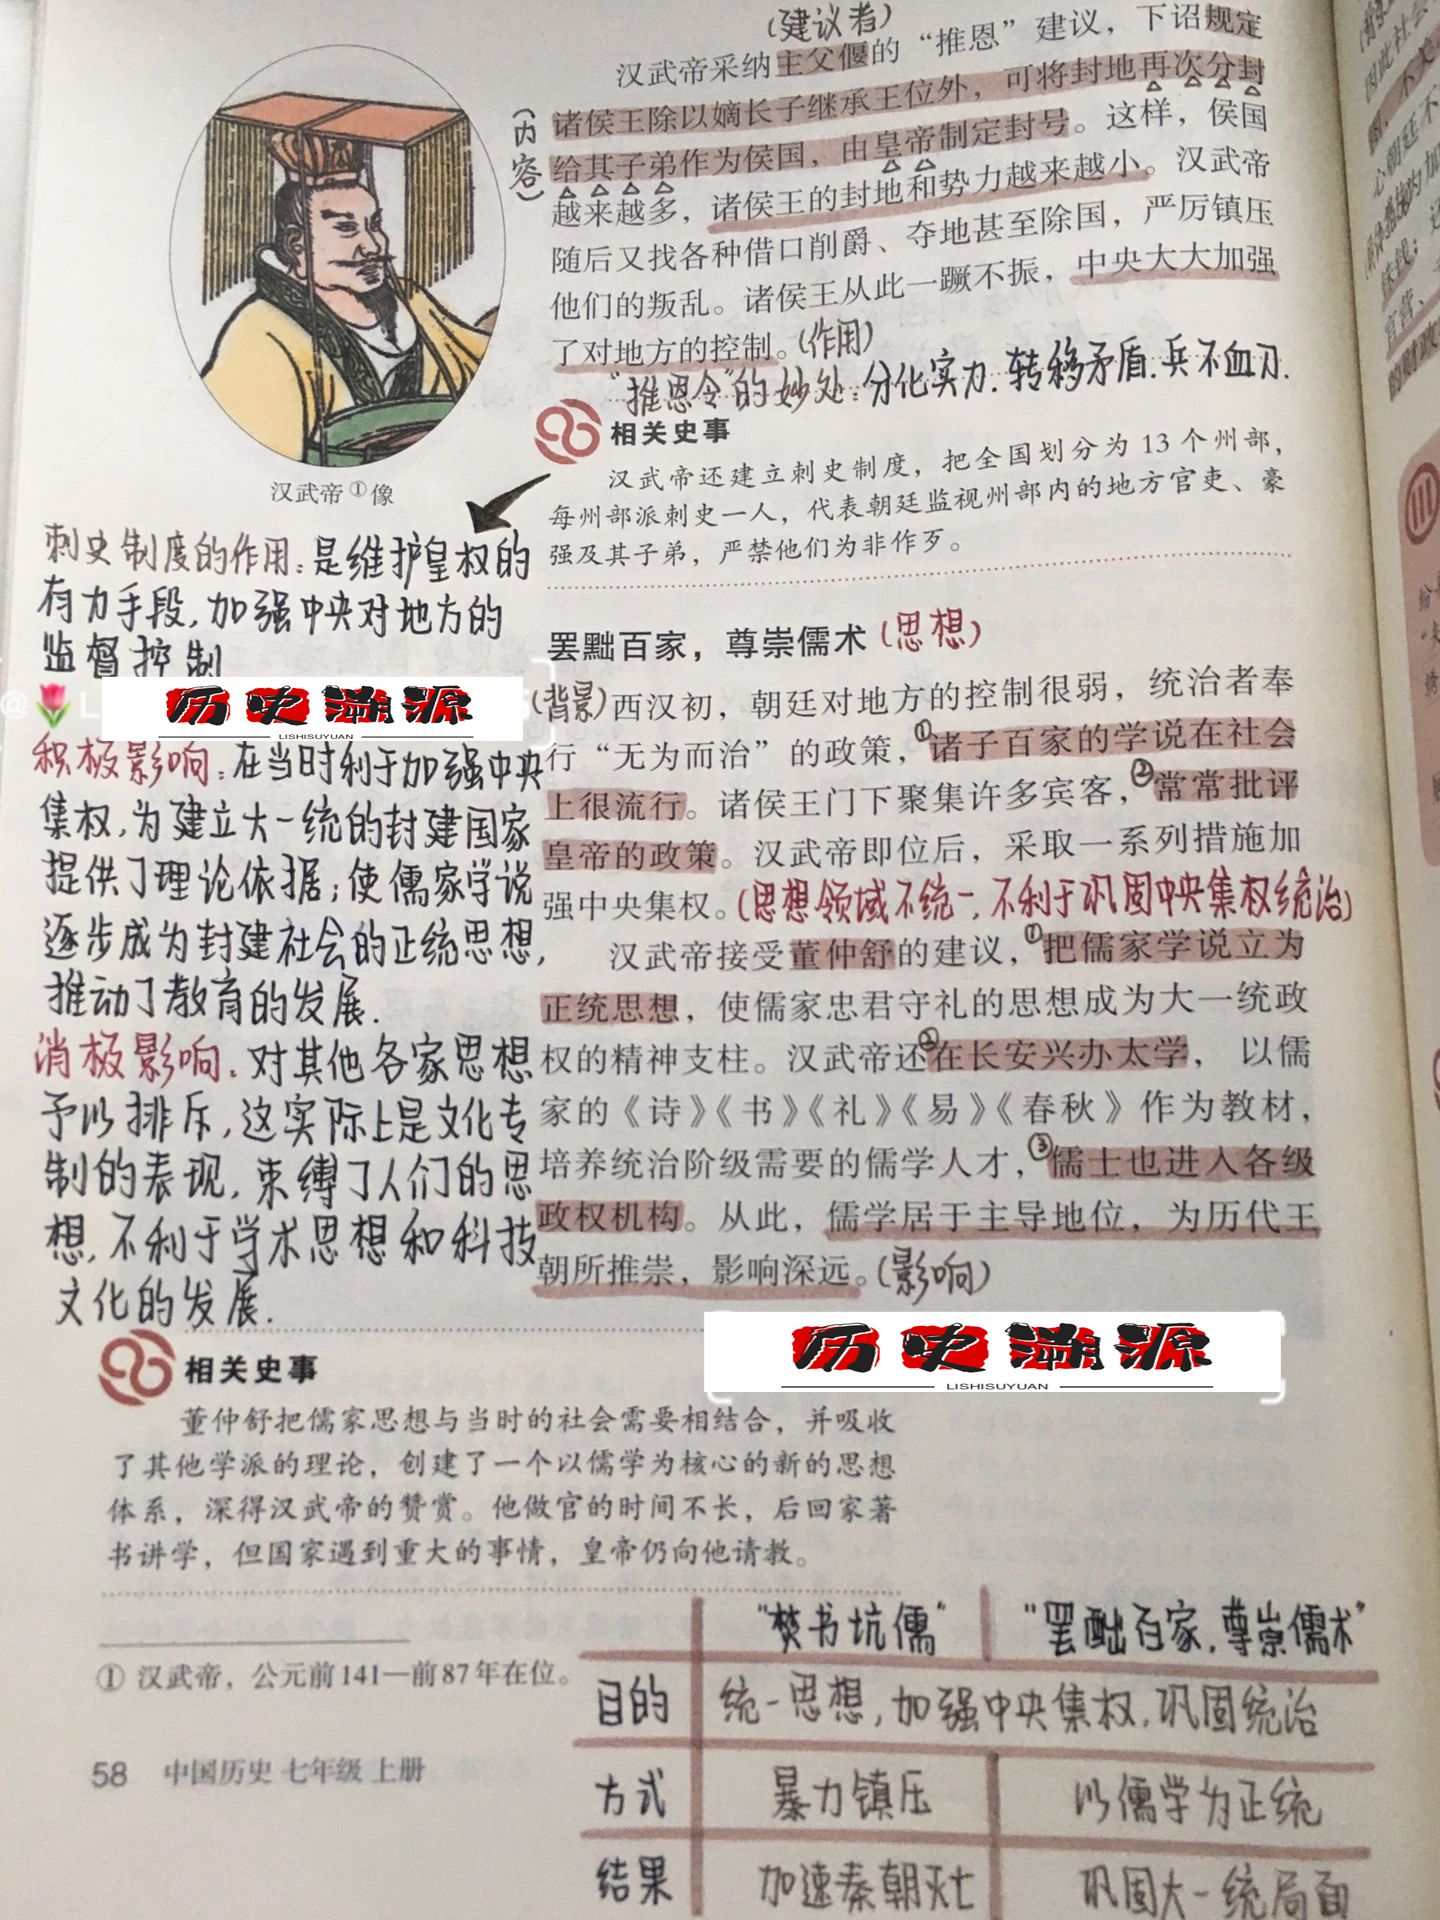 (建议者)
汉武帝采纳主父偃的“推恩”建议，下诏规定
诸侯王除以嫡长子继承王位外，可将封地再次分封
给其子弟作为侯国，由皇帝制定封号。这样，侯国
(内容)
越来越多，诸侯王的封地和势力越来越小。汉武帝
随后又找各种借口削爵、夺地甚至除国，严厉镇压
他们的叛乱。诸侯王从此一蹶不振，中央大大加强
了对地方的控制。(作用)
“推恩令”的妙处：分化实力.转移矛盾.兵不血刃.
汉武帝①像
相关史事
汉武帝还建立刺史制度，把全国划分为 13 个州部，
每州部派刺史一人，代表朝廷监视州部内的地方官吏、豪
强及其子弟，严禁他们为非作歹。
刺史制度的作用：是维护皇权的
有力手段，加强中央对地方的
监督控制
历史溯源
LISHISUYUAN
积极影响：在当时利于加强中央
集权，为建立大一统的封建国家
提供了理论依据；使儒家学说
逐步成为封建社会的正统思想，
推动了教育的发展.
消极影响.对其他各家思想
予以排斥，这实际上是文化专
制的表现，束缚了人们的思
想，不利于学术思想和科技
文化的发展.
罢黜百家，尊崇儒术(思想)
(背景)西汉初，朝廷对地方的控制很弱，统治者奉
行“无为而治”的政策，①诸子百家的学说在社会
上很流行。诸侯王门下聚集许多宾客，②常常批评
皇帝的政策。汉武帝即位后，采取一系列措施加
强中央集权。(思想领域不统一，不利于巩固中央集权统治)
汉武帝接受董仲舒的建议，①把儒家学说立为
正统思想，使儒家忠君守礼的思想成为大一统政
权的精神支柱。汉武帝还②在长安兴办太学，以儒
家的《诗》《书》《礼》《易》《春秋》作为教材，
培养统治阶级需要的儒学人才，③儒士也进入各级
政权机构。从此，儒学居于主导地位，为历代王
朝所推崇，影响深远。(影响)
历史溯源
LISHISUYUAN
相关史事
董仲舒把儒家思想与当时的社会需要相结合，并吸收
了其他学派的理论，创建了一个以儒学为核心的新的思想
体系，深得汉武帝的赞赏。他做官的时间不长，后回家著
书讲学，但国家遇到重大的事情，皇帝仍向他请教。
① 汉武帝，公元前141—前87年在位。
58 中国历史 七年级 上册
“焚书坑儒” “罢黜百家，尊崇儒术”
目的 统一思想，加强中央集权，巩固统治
方式 暴力镇压 以儒学为正统
结果 加速秦朝灭亡 巩固大一统局面